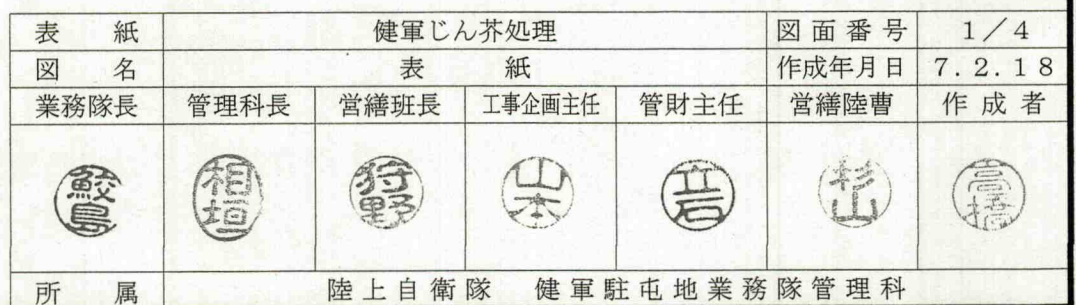 表 紙 健軍じん芥処理 図面番号 1／4
図 名 表 紙 作成年月日 7.2.18
業務隊長 管理科長 営繕班長 工事企画主任 管財主任 営繕陸曹 作成者
鮫島 相垣 狩野 山本 立石 杉山 高橋
所 属 陸上自衛隊 健軍駐屯地業務隊管理科